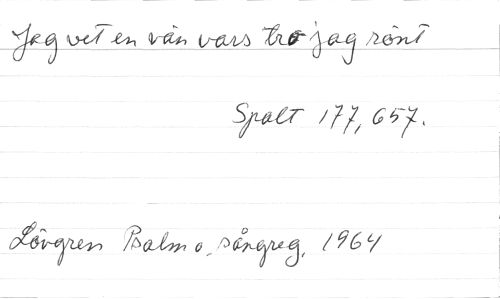 Jag vet en vän vars tro jag rönt
Spalt 177, 657.
Lövgren Psalm o. sångreg. 1964